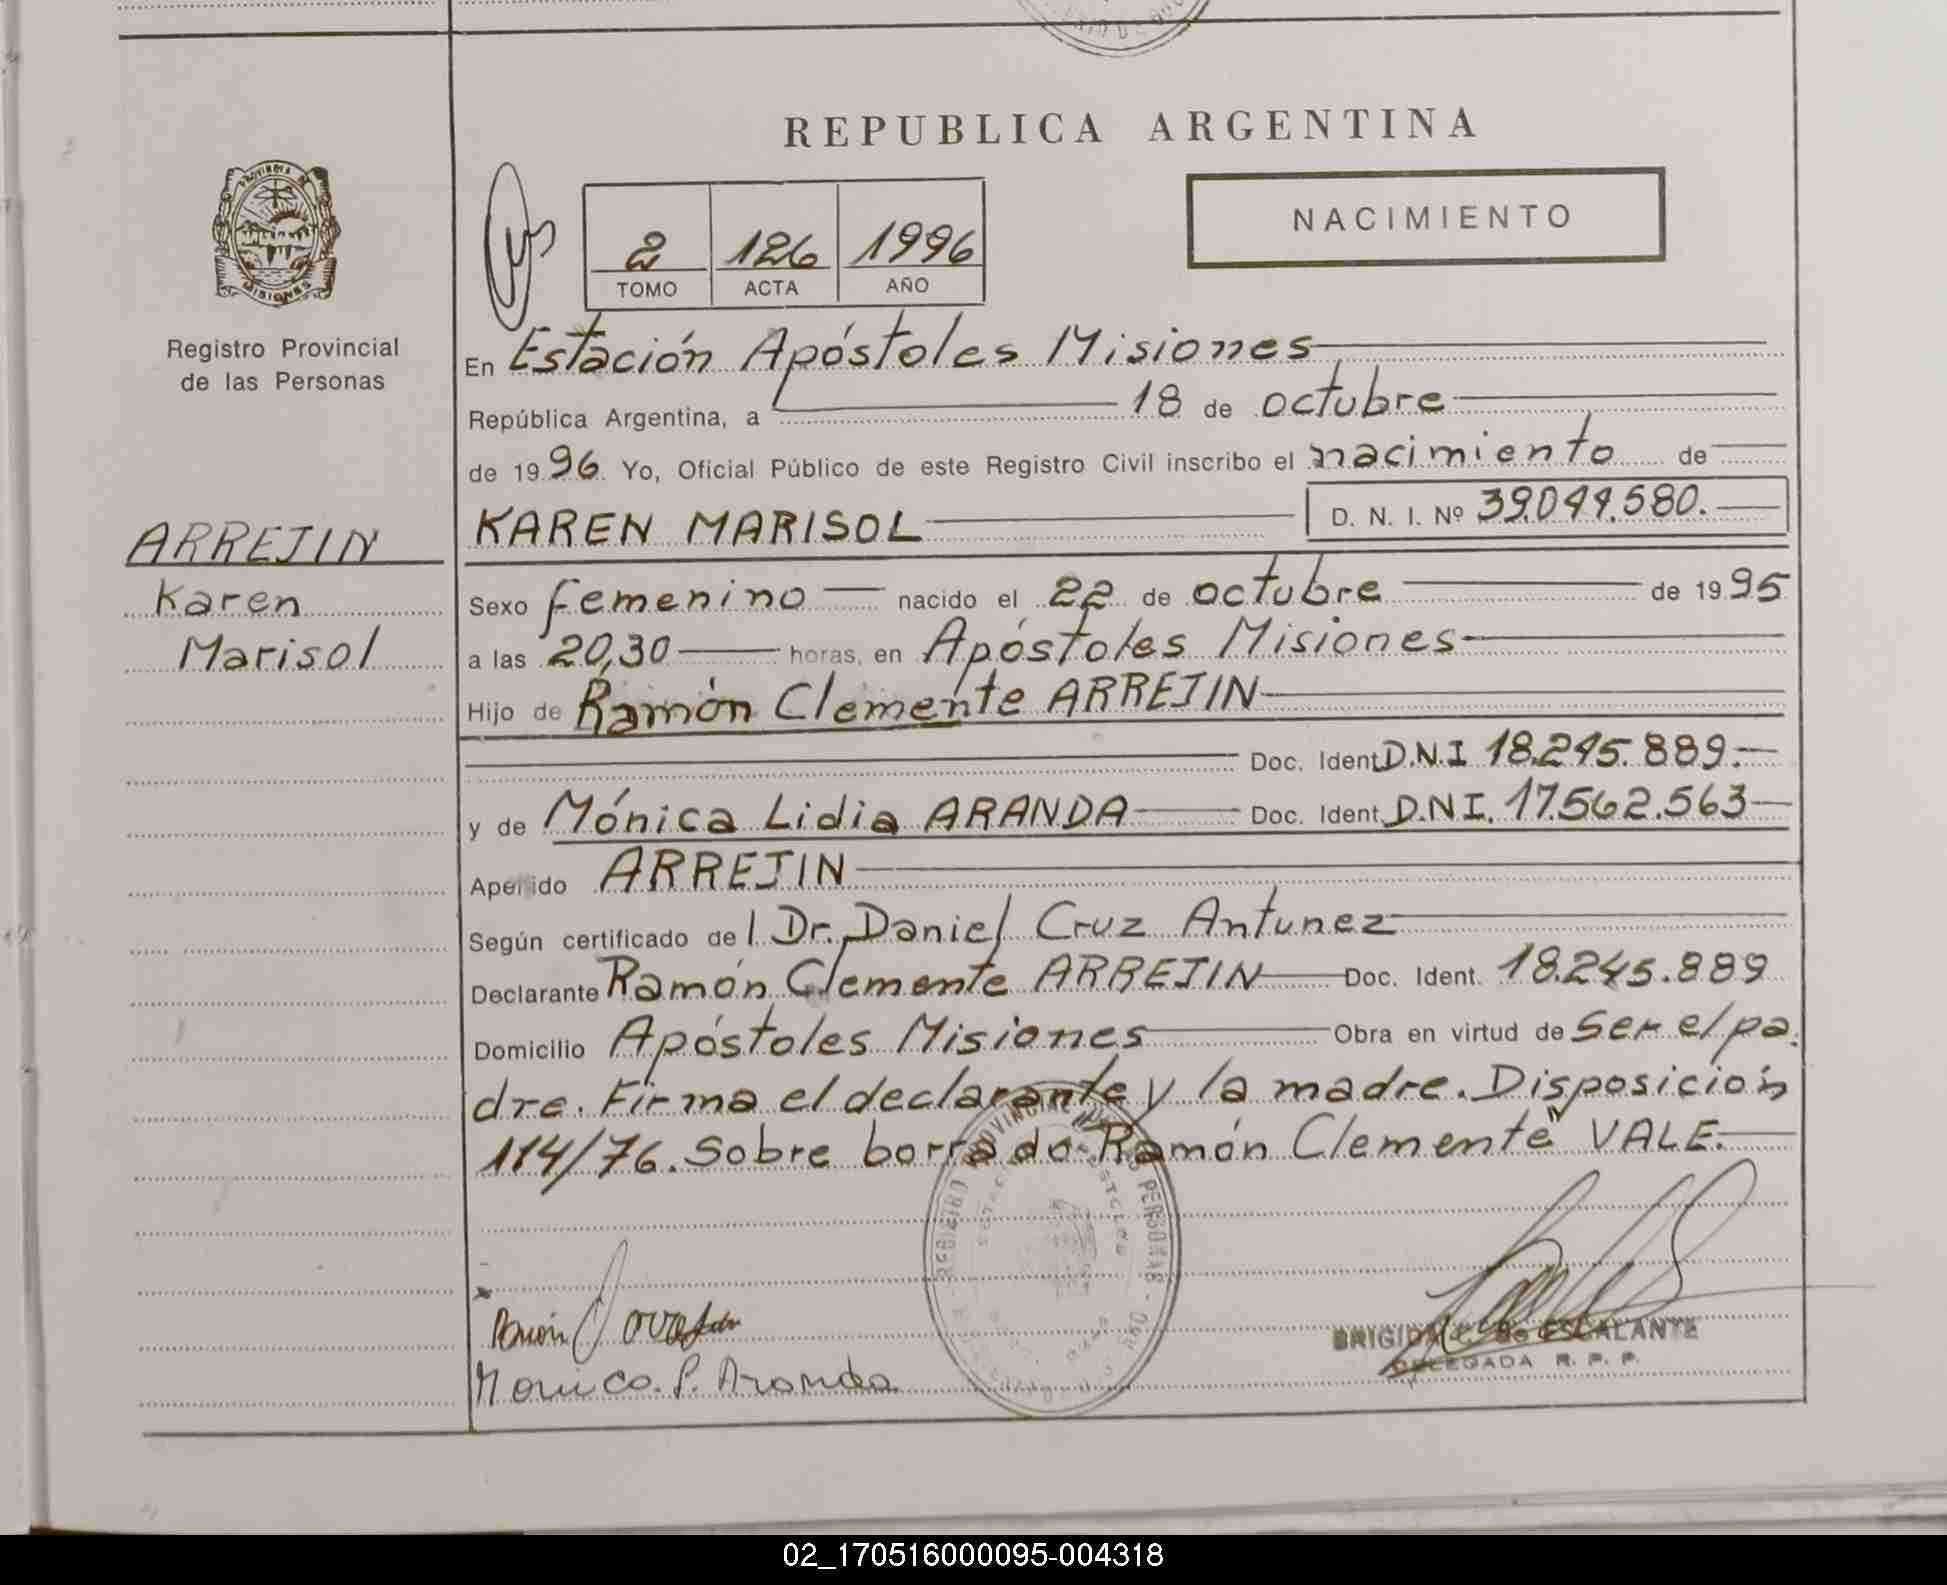 REPUBLICA ARGENTINA
NACIMIENTO
2 126 1996
TOMO ACTA AÑO
PROVINCIA DE MISIONES
Registro Provincial
de las Personas
ARREJIN
Karen
Marisol
En Estación Apóstoles Misiones
República Argentina, a 18 de octubre
de 1996. Yo, Oficial Público de este Registro Civil inscribo el nacimiento de
KAREN MARISOL D. N. I. Nº 39.044.580.
Sexo femenino nacido el 22 de octubre de 1995
a las 20,30 horas, en Apóstoles Misiones
Hijo de Ramón Clemente ARREJIN
Doc. Ident. D.N.I 18.245.889.
y de Mónica Lidia ARANDA Doc. Ident. D.N.I. 17.562.563
Apellido ARREJIN
Según certificado de l Dr. Daniel Cruz Antunez
Declarante Ramón Clemente ARREJIN Doc. Ident. 18.245.889
Domicilio Apóstoles Misiones Obra en virtud de ser el pa.
dre. Firma el declarante y la madre. Disposición
114/76. Sobre borrado Ramón Clemente" VALE.
Monica L. Aranda
BRIGIDA C. de ESCALANTE
DELEGADA R. P. P.
02_170516000095-004318